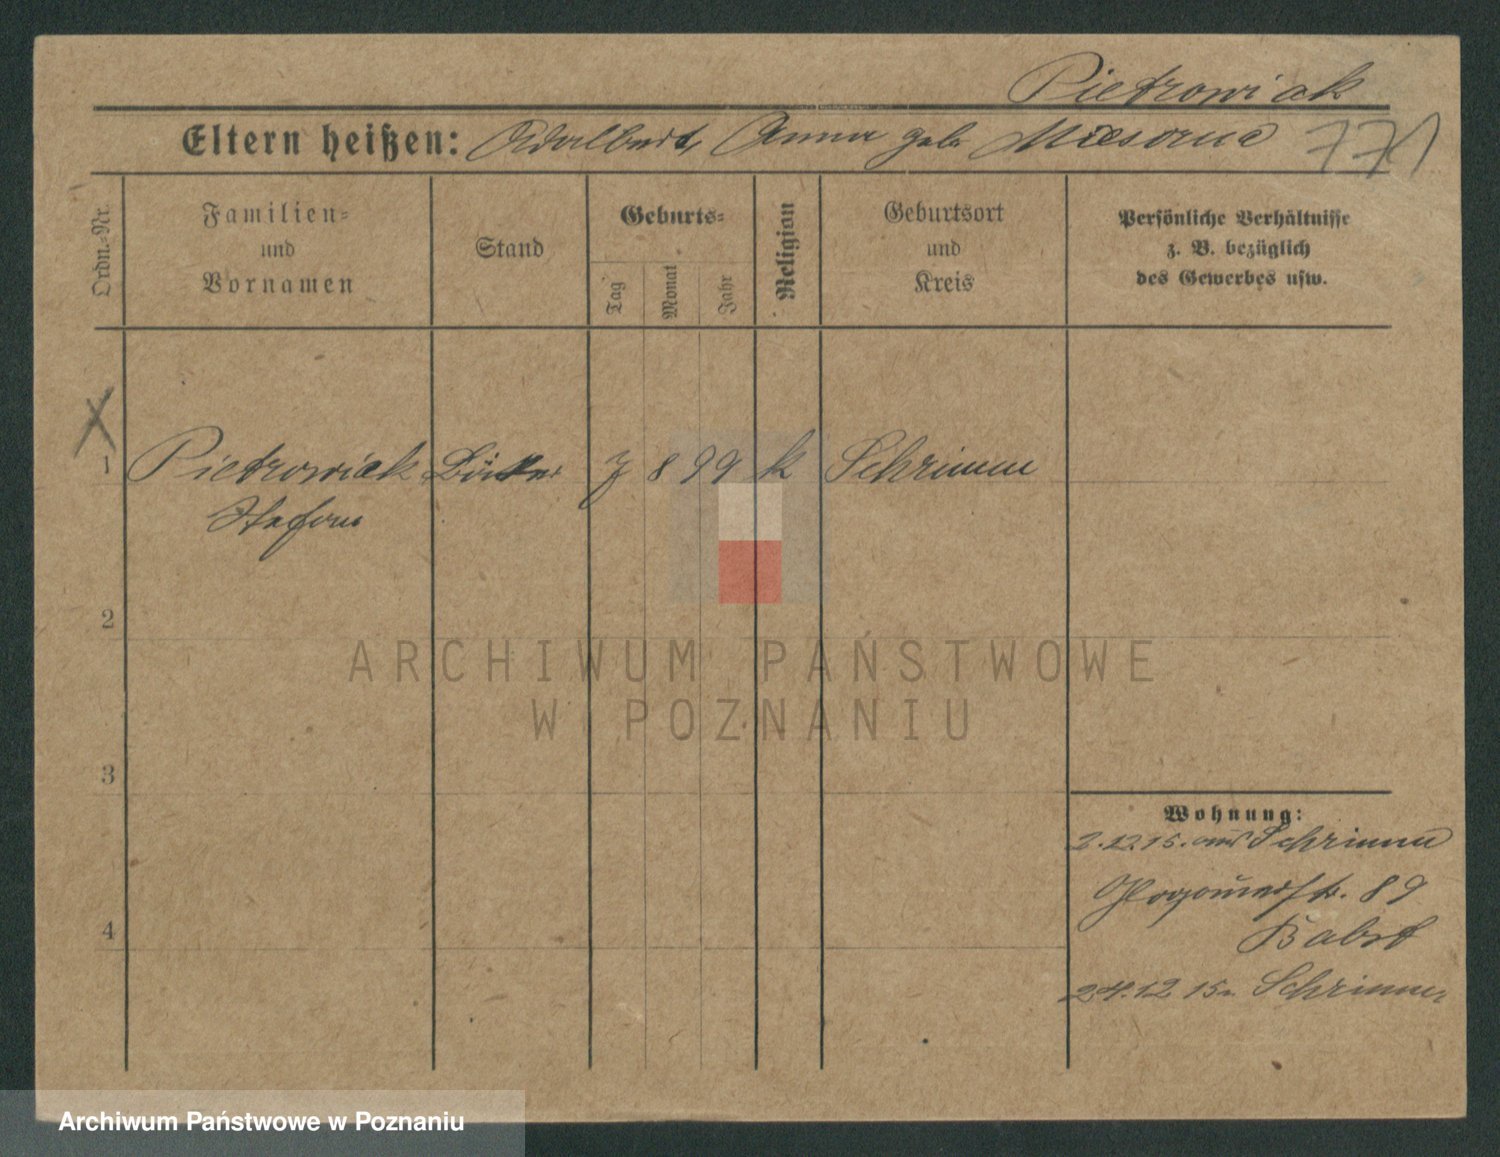 Pietrowiak
Eltern heißen: Adalbert, Anna geb.
771
Ordn.-Nr.
Familien-
und
Vornamen
Stand
Geburts-
Tag
Monat
Jahr
Religion
Geburtsort
und
Kreis
Persönliche Verhältnisse
z. B. bezüglich
des Gewerbes usw.
X
1 Pietrowiak 7 8 99 k Schrimm
Stefan
2
ARCHIWUM PAŃSTWOWE
W POZNANIU
3
Wohnung:
2.12.15. aus Schrimm
Glogauerstr. 89
Babst
4
24.12 15 n Schrimm
Archiwum Państwowe w Poznaniu